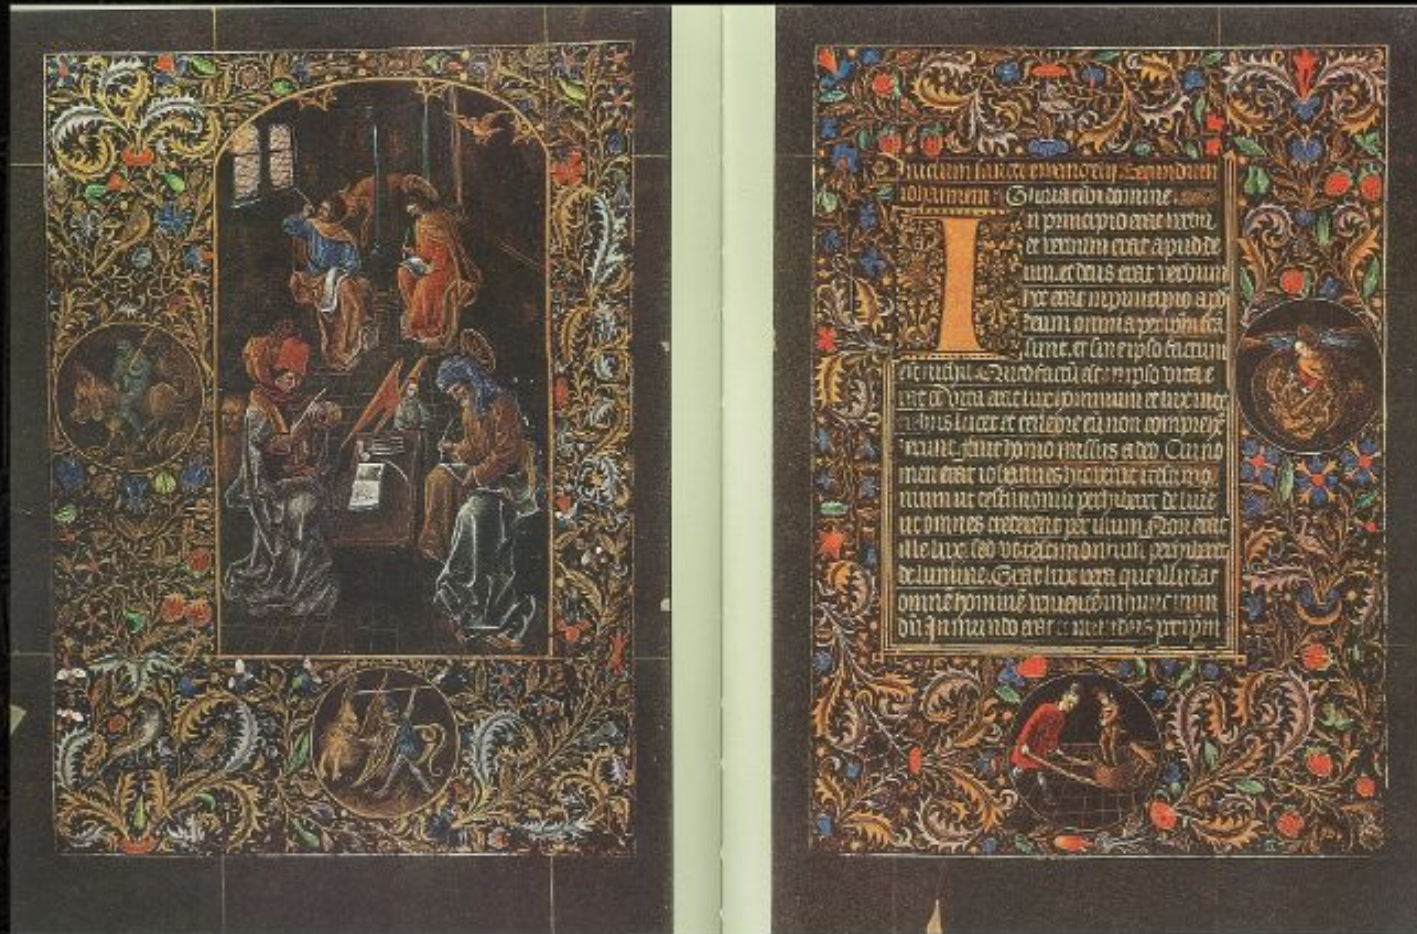 Inicium sancti evangelii secundum
iohannem Gloria tibi domine
In principio erat verbu
et verbum erat apud de
um et deus erat verbum
hoc erat in principio apd
deum omnia per ipm fca
sunt et sine ipso factum
est nichil Quod factu est in ipso vita e
rat et vita erat lux hominum et lux in te
nebris lucet et tenebre eu non comprehe
derunt fuit homo missus a deo Cui no
men erat iohannes hic venit in testimo
nium ut testimoniu perhiberet de lumie
ut omnes crederent per illum Non erat
ille lux sed ut testimonium perhiberet
de lumine Erat lux vera que illumat
omne homine veniente in hunc mun
du In mundo erat et mundus per ipm